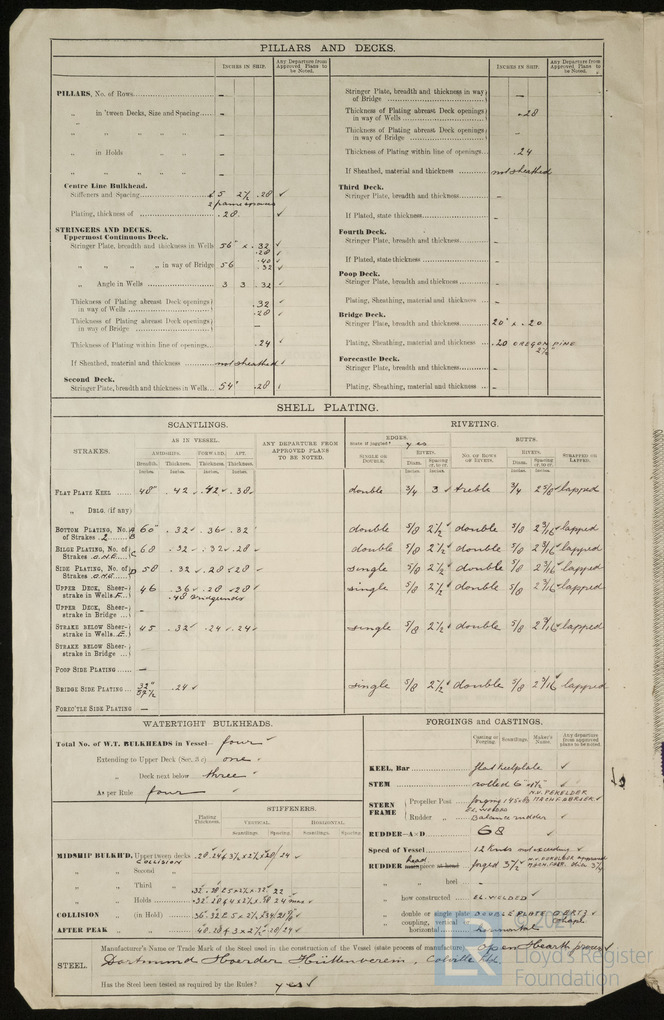 PILLARS AND DECKS.
INCHES IN SHIP.
Any Departure from Approved Plans to be Noted.
PILLARS, No. of Rows –
„ in 'tween Decks, Size and Spacing –
„ „ „ „ –
„ in Holds „ „ –
„ „ „ „ –
Centre Line Bulkhead.
Stiffeners and Spacing 5 2½ .28 ✓
2 frame spaces
Plating, thickness of .28. ✓
STRINGERS AND DECKS.
Uppermost Continuous Deck.
Stringer Plate, breadth and thickness in Wells 56" x .32 ✓
.28 ✓
„ „ „ „ in way of Bridge 56 .40 ✓
.32 ✓
„ Angle in Wells 3 3 .32 ✓
Thickness of Plating abreast Deck openings in way of Wells .32 ✓
.28 ✓
Thickness of Plating abreast Deck openings in way of Bridge –
Thickness of Plating within line of openings .24 ✓
If Sheathed, material and thickness not sheathed ✓
Second Deck.
Stringer Plate, breadth and thickness in Wells 54" .28 ✓
INCHES IN SHIP.
Any Departure from Approved Plans to be Noted.
Stringer Plate, breadth and thickness in way of Bridge –
Thickness of Plating abreast Deck openings in way of Wells .28
Thickness of Plating abreast Deck openings in way of Bridge –
Thickness of Plating within line of openings .24
If Sheathed, material and thickness not sheathed
Third Deck.
Stringer Plate, breadth and thickness –
If Plated, state thickness –
Fourth Deck.
Stringer Plate, breadth and thickness –
If Plated, state thickness –
Poop Deck.
Stringer Plate, breadth and thickness –
Plating, Sheathing, material and thickness –
Bridge Deck.
Stringer Plate, breadth and thickness 20" x .20
Plating, Sheathing, material and thickness .20 OREGON PINE
2½"
Forecastle Deck.
Stringer Plate, breadth and thickness –
Plating, Sheathing, material and thickness –
SHELL PLATING.
SCANTLINGS.
RIVETING.
STRAKES.
AS IN VESSEL.
AMIDSHIPS. FORWARD. AFT.
Breadth. Thickness. Thickness. Thickness.
Inches. Inches. Inches. Inches.
ANY DEPARTURE FROM APPROVED PLANS TO BE NOTED.
EDGES.
State if joggled? yes
SINGLE OR DOUBLE.
RIVETS.
Diam. Spacing cr. to cr.
Inches. Inches.
BUTTS.
NO. OF ROWS OF RIVETS.
RIVETS.
Diam. Spacing cr. to cr.
Inches. Inches.
STRAPPED OR LAPPED.
FLAT PLATE KEEL 48" .42 ✓ .42 ✓ .38 ✓ double ¾ 3 ✓ treble ¾ 2⅝ ✓ lapped
„ DBLG. (if any)
BOTTOM PLATING, No. of Strakes 2 A B 60" .32 ✓ .36 ✓ .32 double ⅝ 2½ ✓ double ⅝ 2 3/16 ✓ lapped
BILGE PLATING, No. of Strakes ONE C 68 .32 ✓ .32 ✓ .28 ✓ double ⅝ 2½ ✓ double ⅝ 2 3/16 ✓ lapped
SIDE PLATING, No. of Strakes ONE D 58 .32 ✓ .28 ✓ .28 ✓ single ⅝ 2½ ✓ double ⅝ 2 3/16 ✓ lapped
UPPER DECK, Sheerstrake in Wells F 46 .36 ✓ .28 ✓ .28 ✓ single ⅝ 2½ ✓ double ⅝ 2 3/16 ✓ lapped
UPPER DECK, Sheerstrake in Bridge –
STRAKE BELOW SHEERstrake in Wells E 45 .32 ✓ .24 ✓ .24 ✓ single ⅝ 2½ ✓ double ⅝ 2 3/16 ✓ lapped
STRAKE BELOW SHEERstrake in Bridge
POOP SIDE PLATING –
BRIDGE SIDE PLATING .24 ✓ single ⅝ 2½ ✓ double ⅝ 2 3/16 ✓ lapped
FOREC'TLE SIDE PLATING –
WATERTIGHT BULKHEADS.
Total No. of W.T. BULKHEADS in Vessel– four ✓
Extending to Upper Deck one ✓
„ Deck next below three ✓
As per Rule four ✓
STIFFENERS.
Plating Thickness.
VERTICAL. HORIZONTAL.
Scantlings. Spacing. Scantlings. Spacing.
MIDSHIP BULKH'D, Upper tween decks
COLLISION
„ „ Second „
„ „ Third „
„ „ Holds
COLLISION „ (in Hold)
AFTER PEAK „ „
FORGINGS AND CASTINGS.
Casting or Forging. Scantlings. Maker's Name. Any departure from approved plans to be noted.
KEEL, Bar flat keelplate ✓
STEM rolled ✓
STERN FRAME Propeller Post forging
EL. WELDED
„ Rudder „ Balance rudder ✓
RUDDER—A×D 68 ✓
Speed of Vessel 12 knots not exceeding ✓
RUDDER head forged 3½ ✓
„ „ heel –
„ how constructed EL. WELDED ✓
„ double or single plate DOUBLE PLATE OERTZ ✓
„ coupling, vertical or horizontal horizontal shape
STEEL.
Manufacturer's Name or Trade Mark of the Steel used in the construction of the Vessel (state process of manufacture) Open Hearth process
Dortmund Hoerder Hüttenverein, Colville Ltd.
Has the Steel been tested as required by the Rules? yes ✓
© 2021
LR
Lloyd's Register
Foundation